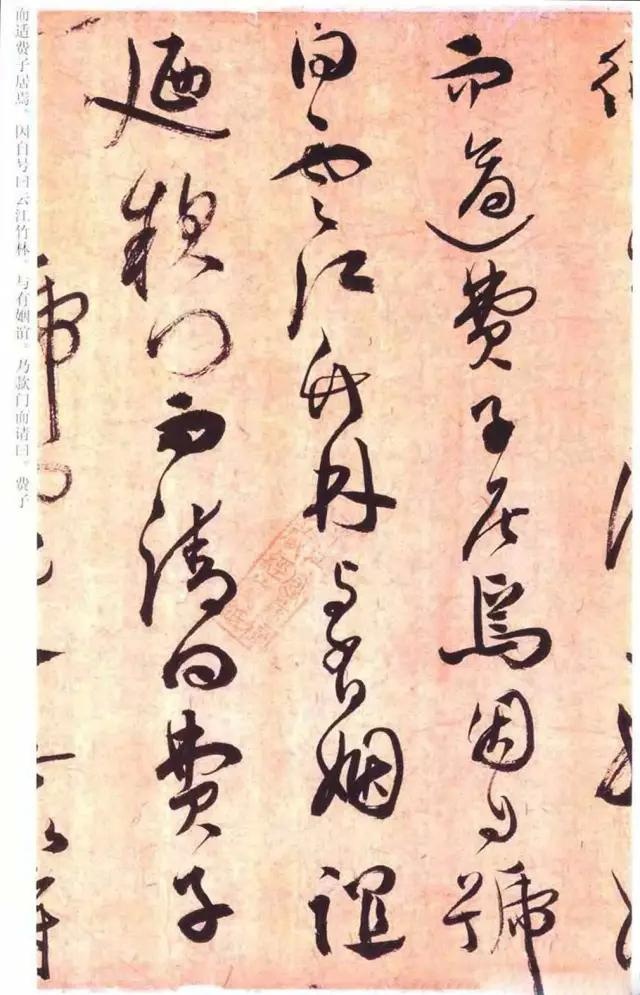 而適費子居焉因自號
曰雲江竹林与有姻誼
廼款門而請曰費子
而适费子居焉。因自号曰云江竹林。与有姻谊。乃款门而请曰。费子